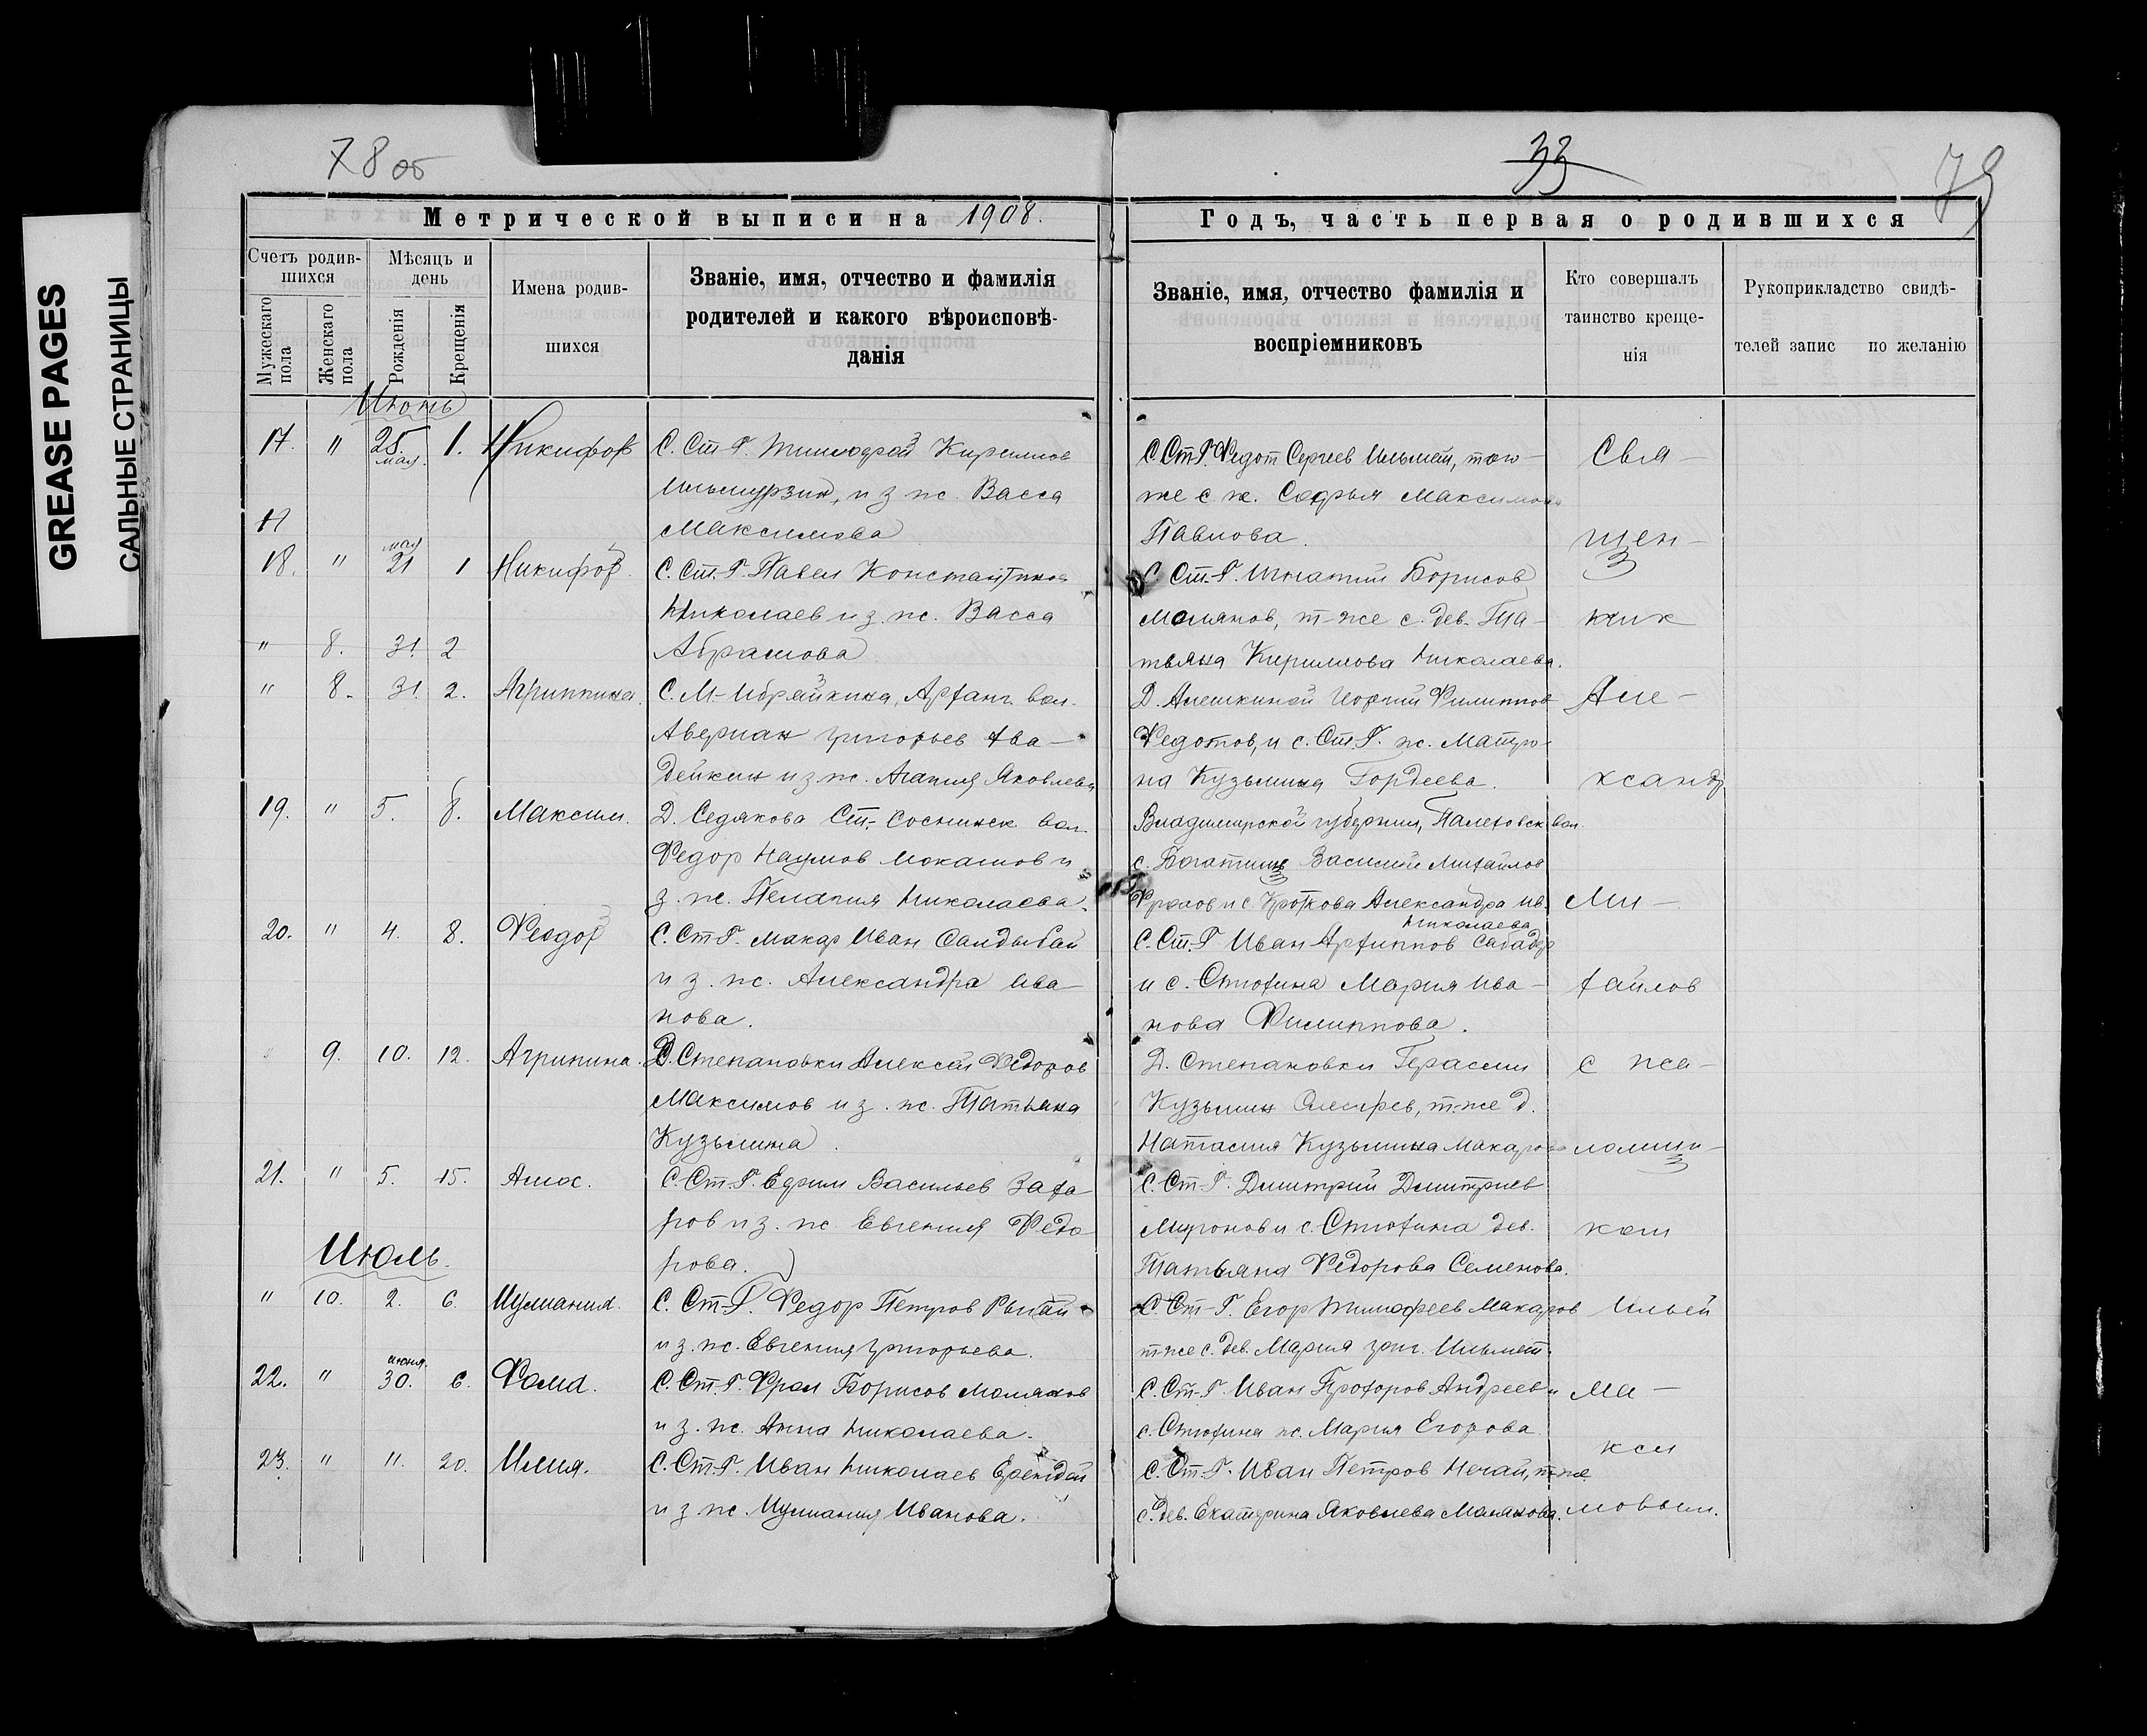 GREASE PAGES
САЛЬНЫЕ СТРАНИЦЫ
78 об
33
79
Метрической выписи на 1908.
Годъ, часть первая о родившихся
Счетъ родив-
шихся
Мужескаго пола
Женскаго пола
Мѣсяцъ и
день
Рожденія
Крещенія
Имена родив-
шихся
Званіе, имя, отчество и фамилія
родителей и какого вѣроисповѣ-
данія
Званіе, имя, отчество фамилія и
воспріемниковъ
Кто совершалъ
таинство креще-
нія
Рукоприкладство свидѣ-
телей запис по желанію
Июнь
17. " 25. мая. 1. Никифор С. Ст. Г. Тимофей Кирилов
Ильмурзин, и з. ж. Васса
Максимова
С. Ст. Г. Федот Сергеев Ильмен, того-
же с. ж. Софья Максимова
Павлова.
Свя-
щен-
18. " мая 21 1 Никифор. С. Ст. Г. Павел Константинов
Николаев и з. ж. Васса
Абрамова
С. Ст. Г. Игнатий Борисов
Моляков, т-же с. дев. Та-
тьяна Кирилова Николаева.
ник
" 8. 31. 2
" 8. 31. 2. Агриппина. С. М-Ибряйкина, Арханг. вол.
Авериан Григорьев Ава-
дейкин и з. ж. Агапия Яковлева
Д. Алешкиной Георгий Филиппов
Федотов, и с. Ст. Г. ж. Матро-
на Кузьмина Гордеева.
Але-
ксандр
19. " 5. 8. Максим. Д. Седякова Ст.-Соснинск. вол.
Федор Наумов Мокашов и
з. ж. Пелагия Николаева.
Владимирской губернии, Палеховск. вол.
с. Василий Михайлов
Фролов и с. Кроткова Александра Ив.
Николаева
Ми-
20. " 4. 8. Феодор С. Ст. Г. Макар Иван Сандыбай
и з. ж. Александра Ива-
нова.
С. Ст. Г. Иван Архиппов Сабадер
и с. Стюхина Мария Ива-
нова Филиппова.
хайлов
9. 10. 12. Агрипина. Д. Степановки Алексей Федоров
Максимов и з. ж. Татьяна
Кузьмина.
Д. Степановки Герасим
Кузьмин т-же д.
Наталия Кузьмина Макарова
с пса-
ломщи-
21. " 5. 15. Амос. С. Ст. Г. Ефим Васильев Заха-
ров и з. ж. Евгения Федо
рова.
С. Ст. Г. Димитрий Димитриев
Миронов и с. Стюхина дев.
Татьяна Федорова Семенова.
ком
Июль.
" 10. 2. 6. Иулиания. С. Ст-Г. Федор Петров Рынай
и з. ж. Евгения Григорьева.
С. Ст-Г. Егор Тимофеев Макаров
т-же с. дев. Мария Григ. Ильмет.
Ильей
22. " июня. 30. 6. Фома. С. Ст. Г. Фрол Борисов Моляков
и з. ж. Анна Николаева.
С. Ст-Г. Иван Прохоров Андреев и
с. Стюхина ж. Мария Егорова.
Ма-
кси
23. " 11. 20. Илия. С. Ст-Г. Иван Николаев Ерендей
и з. ж. Иулиания Иванова.
С. Ст-Г. Иван Петров Нечай, т-же
с. дев. Екатерина Яковлева Молякова.
мовым.